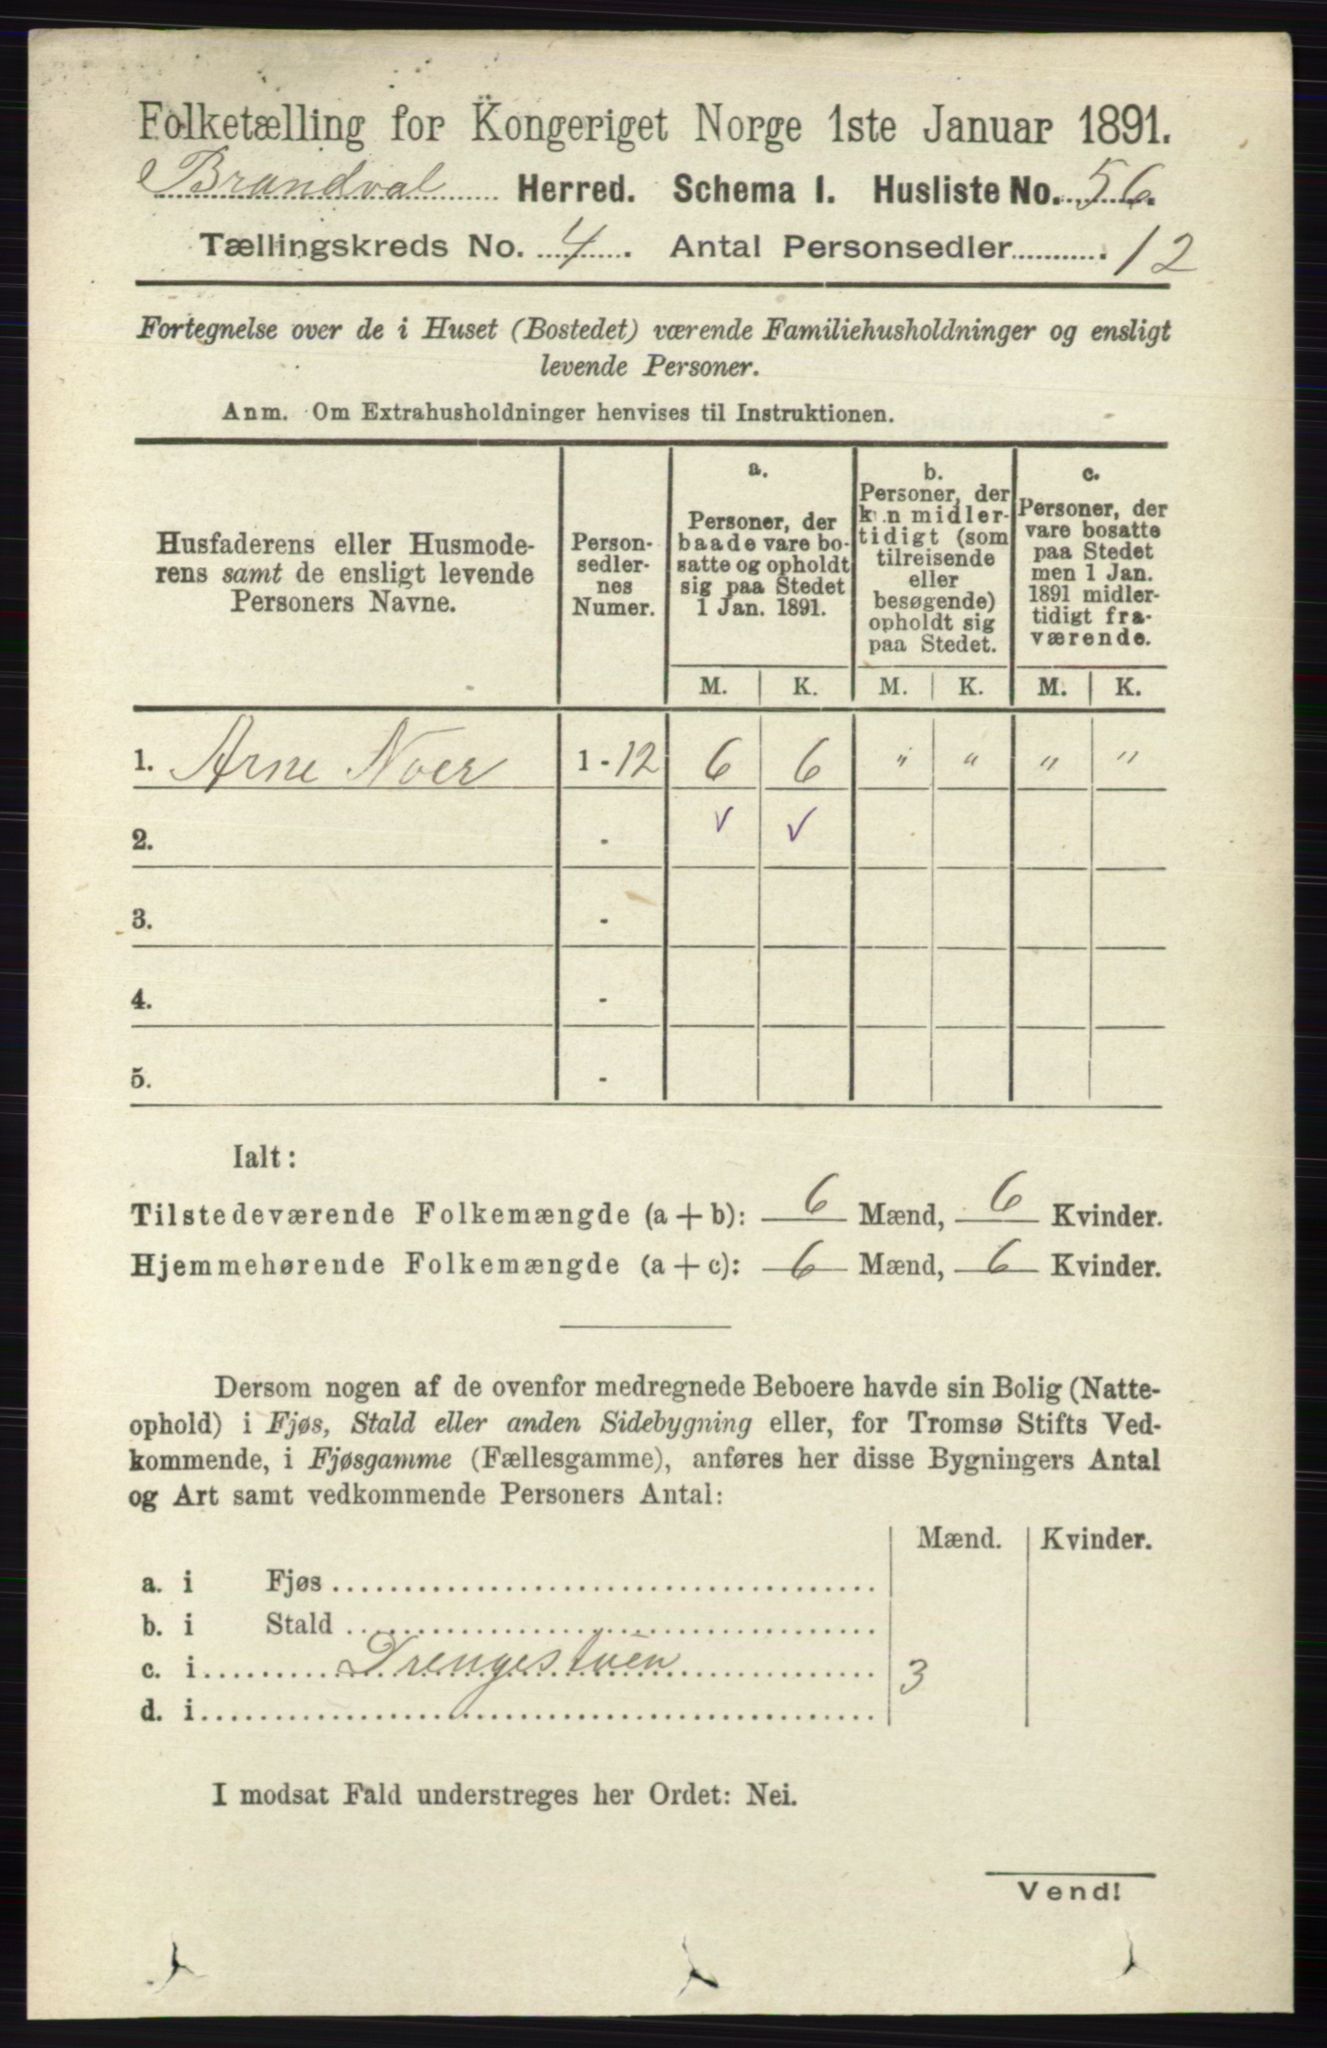 Folketælling for Kongeriget Norge 1ste Januar 1891.
Brandval Herred. Schema I. Husliste No. 56.
Tællingskreds No. 4. Antal Personsedler 12
Fortegnelse over de i Huset (Bostedet) værende Familiehusholdninger og ensligt
levende Personer.
Anm. Om Extrahusholdninger henvises til Instruktionen.
Husfaderens eller Husmode-
rens samt de ensligt levende
Personers Navne.
Person-
sedler-
nes
Numer.
a.
Personer, der
baade vare bo-
satte og opholdt
sig paa Stedet
1 Jan. 1891.
b.
Personer, der
kun midler-
tidigt (som
tilreisende
eller
besøgende)
opholdt sig
paa Stedet.
c.
Personer, der
vare bosatte
paa Stedet
men 1 Jan.
1891 midler-
tidigt fra-
værende.
M. K. M. K. M. K.
1. Arne Noer 1 - 12 6 6 " " " "
2. - ✓ ✓
3. -
4. -
5. -
Ialt:
Tilstedeværende Folkemængde (a + b): 6 Mænd, 6 Kvinder.
Hjemmehørende Folkemængde (a + c): 6 Mænd, 6 Kvinder.
Dersom nogen af de ovenfor medregnede Beboere havde sin Bolig (Natte-
ophold) i Fjøs, Stald eller anden Sidebygning eller, for Tromsø Stifts Ved-
kommende, i Fjøsgamme (Fællesgamme), anføres her disse Bygningers Antal
og Art samt vedkommende Personers Antal:
Mænd. Kvinder.
a. i Fjøs
b. i Stald
c. i Drengestuen 3
d. i
I modsat Fald understreges her Ordet: Nei.
Vend!